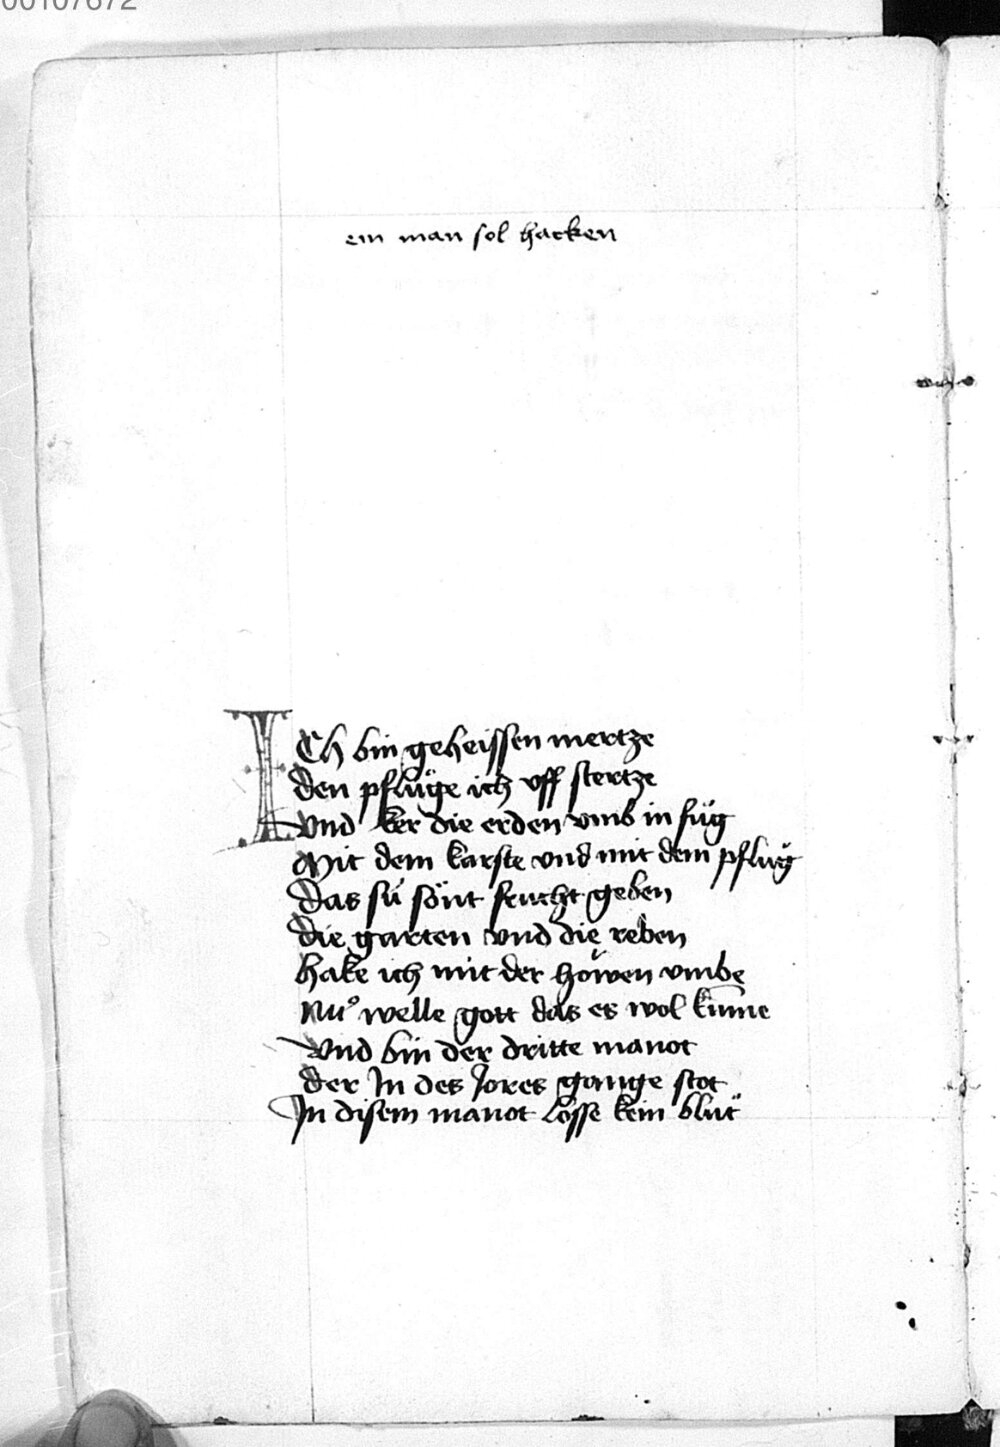 00107672
ein man sol hacken
ICh bin geheissen mertze
den pflüge ich vff stertze
Vnd ker die erden vmb in füg
Mit dem karste vnd mit dem pflüg
Das sú sönt frucht geben
die garten vnd die reben
hake ich mit der höwen vmbe
Nuͦ welle gott das es wol kum̄e
Vnd bin der dritte manot
der In des Jores gange stot
In disem manot losse kein blüt